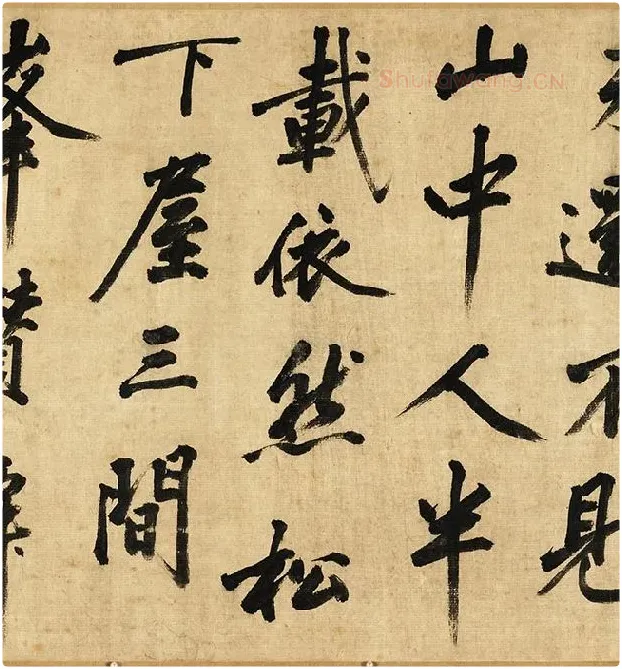 還不見
山中人半
載依然松
下屋三間
峯
ShufaWang.CN